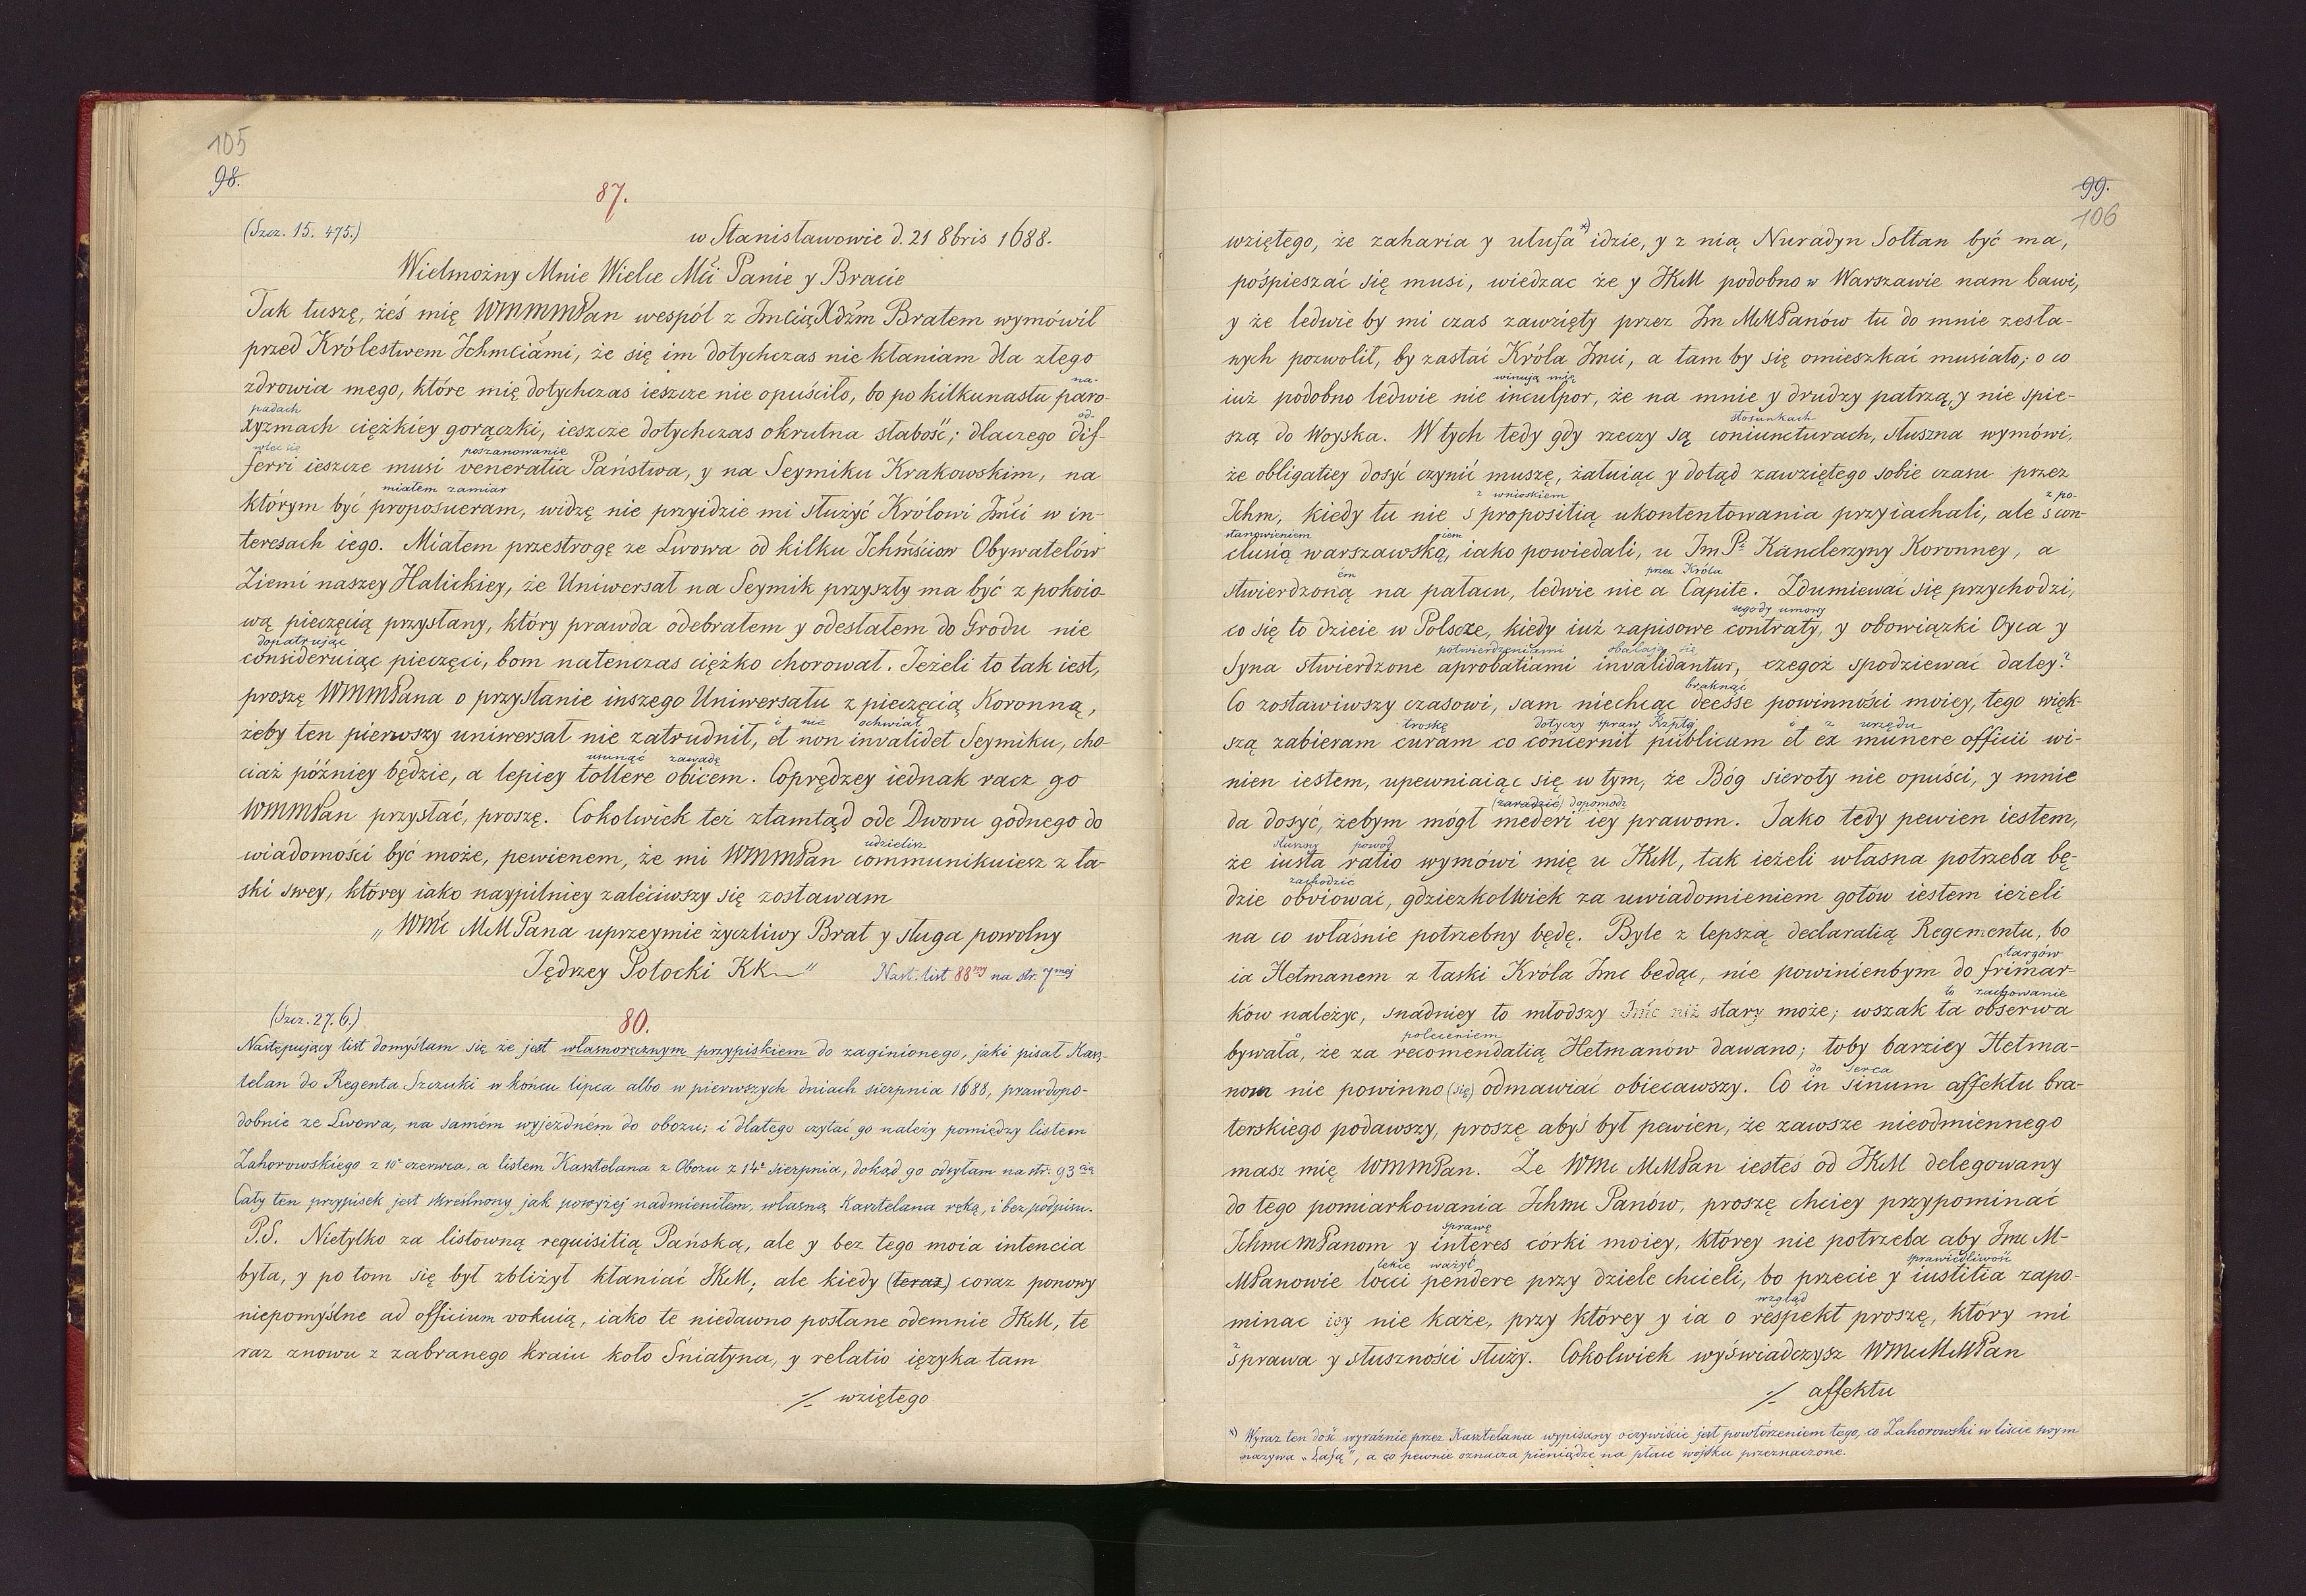 105
98.
87.
(Szcz. 15. 475.)
w Stanisławowie d. 21 8bris 1688.
Wielmożny Mnie Wielce Mći Panie y Bracie
Tak tuszę, żeś mię WMMMPan wespół z JmciąXdzm Bratem wymówił
przed Królestwem Ichmciámi, że się im dotychczas nie kłaniam dla złego
zdrowia mego, które mię dotychczas ieszcze nie opuściło, bo po kilkunastu paro-
na-
padach
xyzmach ciężkiey gorączki, ieszcze dotychczas okrutna słabość; dlaczego dif-
od-
wlec się
poszanowanie
ferri ieszcze musi veneratia Państwa, y na Seymiku Krakowskim, na
miałem zamiar
którym być proposueram, widzę nie przyidzie mi służyć Królowi Jmći w in-
teresach iego. Miałem przestrogę ze Lwowa od kilku Ichmściow Obywatelów
Ziemi naszey Halickiey, że Uniwersał na Seymik przyszły ma być z pokoio-
wą pieczęcią przysłany, który prawda odebrałem y odesłałem do Grodu nie
dopatrując
consideruiąc pieczęci, bom natenczas ciężko chorował. Jeżeli to tak iest,
proszę WMMPana o przysłanie inszego Uniwersału z pieczęcią Koronną,
i nie ochwiał
żeby ten pierwszy uniwersał nie zatrudnił, et non invalidet Seymiku, cho-
usunąć zawadę
ciaż późniey będzie, a lepiey tollere obicem. Coprędzey iednak racz go
WMMPan przysłać, proszę. Cokolwiek też ztamtąd ode Dworu godnego do
udzielisz
wiadomości być może, pewienem, że mi WMMPan communikuiesz z ła-
ski swey, którey iako naypilniey zaleciwszy się zostawam
„ WMć MMPana uprzeymie życzliwy Brat y sługa powolny
Jędrzey Potocki KK "
Nast. list 88my na str. 7mej
(Szcz. 27. 6.)
80.
Następujący list domyślam się że jest własnoręcznym przypiskiem do zaginionego, jaki pisał Kasz-
telan do Regenta Szczuki w końcu lipca albo w pierwszych dniach sierpnia 1688, prawdopo-
dobnie ze Lwowa, na samém wyjezdném do obozu; i dlatego czytać go należy pomiędzy listem
Zahorowskiego z 10o czerwca, a listem Kasztelana z Obozu z 14o sierpnia, dokąd go odsyłam na str. 93cią
Cały ten przypisek jest skreślnony jak powyżej nadmieniłem, własną Kasztelana ręką, i bez podpisu.
P.S. Nietylko za listowną requisitią Pańską, ale y bez tego moia intencia
była, y po tom się był zbliżył kłaniać JKM; ale kiedy (teraz) coraz ponowy
niepomyślne ad officium vokuią, iako te niedawno posłane odemnie JKM, te
raz znowu z zabranego kraiu koło Sniatyna, y relatio ięzyka tam
./. wziętego
99.
106
wziętego, że zaharia y ulufa *) idzie, y z nią Nuradyn Sołtan być ma,
pośpieszać się musi, wiedzac że y JKM podobno w Warszawie nam bawi,
y że ledwie by mi czas zawzięty przez Jm MMPanów tu do mnie zesła-
nych pozwolił, by zastać Króla Jmci, a tam by się omieszkać musiało; o co
winują mię
iuż podobno ledwie nie inculpor, że na mnie y drudzy patrzą, y nie spie-
stosunkach
szą do Woyska. W tych tedy gdy rzeczy są coniuncturach, słuszna wymówi,
że obligatiey dosyć czynić muszę, żałuiąc y dotąd zawziętego sobie czasu przez
z wnioskiem
z po-
Ichm, kiedy tu nie s propositią ukontentowania przyiachali, ale s con-
stanowieniem
iem
clusią warszawską, iako powiedali, u Jm Pi Kanclerzyny Koronney, a
ém
przez Króla
stwierdzoną na pałacu, ledwie nie a Capite. Zdumiewać się przychodzi,
ugody umowy
co się to dzieie w Polscze, kiedy iuż zapisowe contraty, y obowiązki Oyca y
potwierdzeniami obalają się
Syna stwierdzone aprobatiami invalidantur, czegoż spodziewać daley?
braknąć
Co zostawiwszy czasowi, sam niechcąc deesse powinności moiey, tego więk-
troskę dotyczy spraw Rzpltéj i z urzędu
szą zabieram curam co concernit publicum et ex munere officii wi-
nien iestem, upewniaiąc się w tym, że Bóg sieroty nie opuści, y mnie
(zaradzić) dopomodz
da dosyć, żebym mógł mederi iey prawom. Jako tedy pewien iestem,
słuszny powód
że iusta ratio wymówi mię u JKM, tak ieżeli własna potrzeba bę-
zachodzić
dzie obviować, gdzieżkolwiek za uwiadomieniem gotów iestem ieżeli
na co właśnie potrzebny będę. Byle z lepszą declaratią Regementu, bo
targów
ia Hetmanem z łaski Króla Jmc bedąc, nie powinienbym do frimar-
to zachowanie
ków należyc, snadniey to młodszy Jmć niż stary może; wszak ta obserwa
o
poleceniem
bywała, że za recomendatią Hetmanów dawano; toby barziey Hetma-
do serca
nom nie powinno (się) odmawiać obiecawszy. Co in sinum affektu bra-
terskiego podawszy, proszę abyś był pewien, że zawsze nieodmiennego
masz mię WMMPan. Ze WMc MMPan iesteś od JKM delegowany
do tego pomiarkowania Ichmc Panów, proszę chciey przypominać
sprawę
IchmcMPanom y interes córki moiey, którey nie potrzeba aby Jmc M-
lekce ważyć
sprawiedliwość
MPanowie locci pendere przy dziele chcieli, bo przecie y iustitia zapo-
wzgląd
minac iey nie każe, przy którey y ia o respekt proszę, który mi
sprawa y słuszności służy. Cokolwiek wyświadczysz WMcMMPan
./. affektu
*) Wyraz ten dość wyraźnie przez Kasztelana wypisany oczywiście jest powtórzeniem tego, co Zahorowski w liście swym
nazywa „Łafą", a co pewnie oznacza pieniądze na płace wojsku przeznaczone.